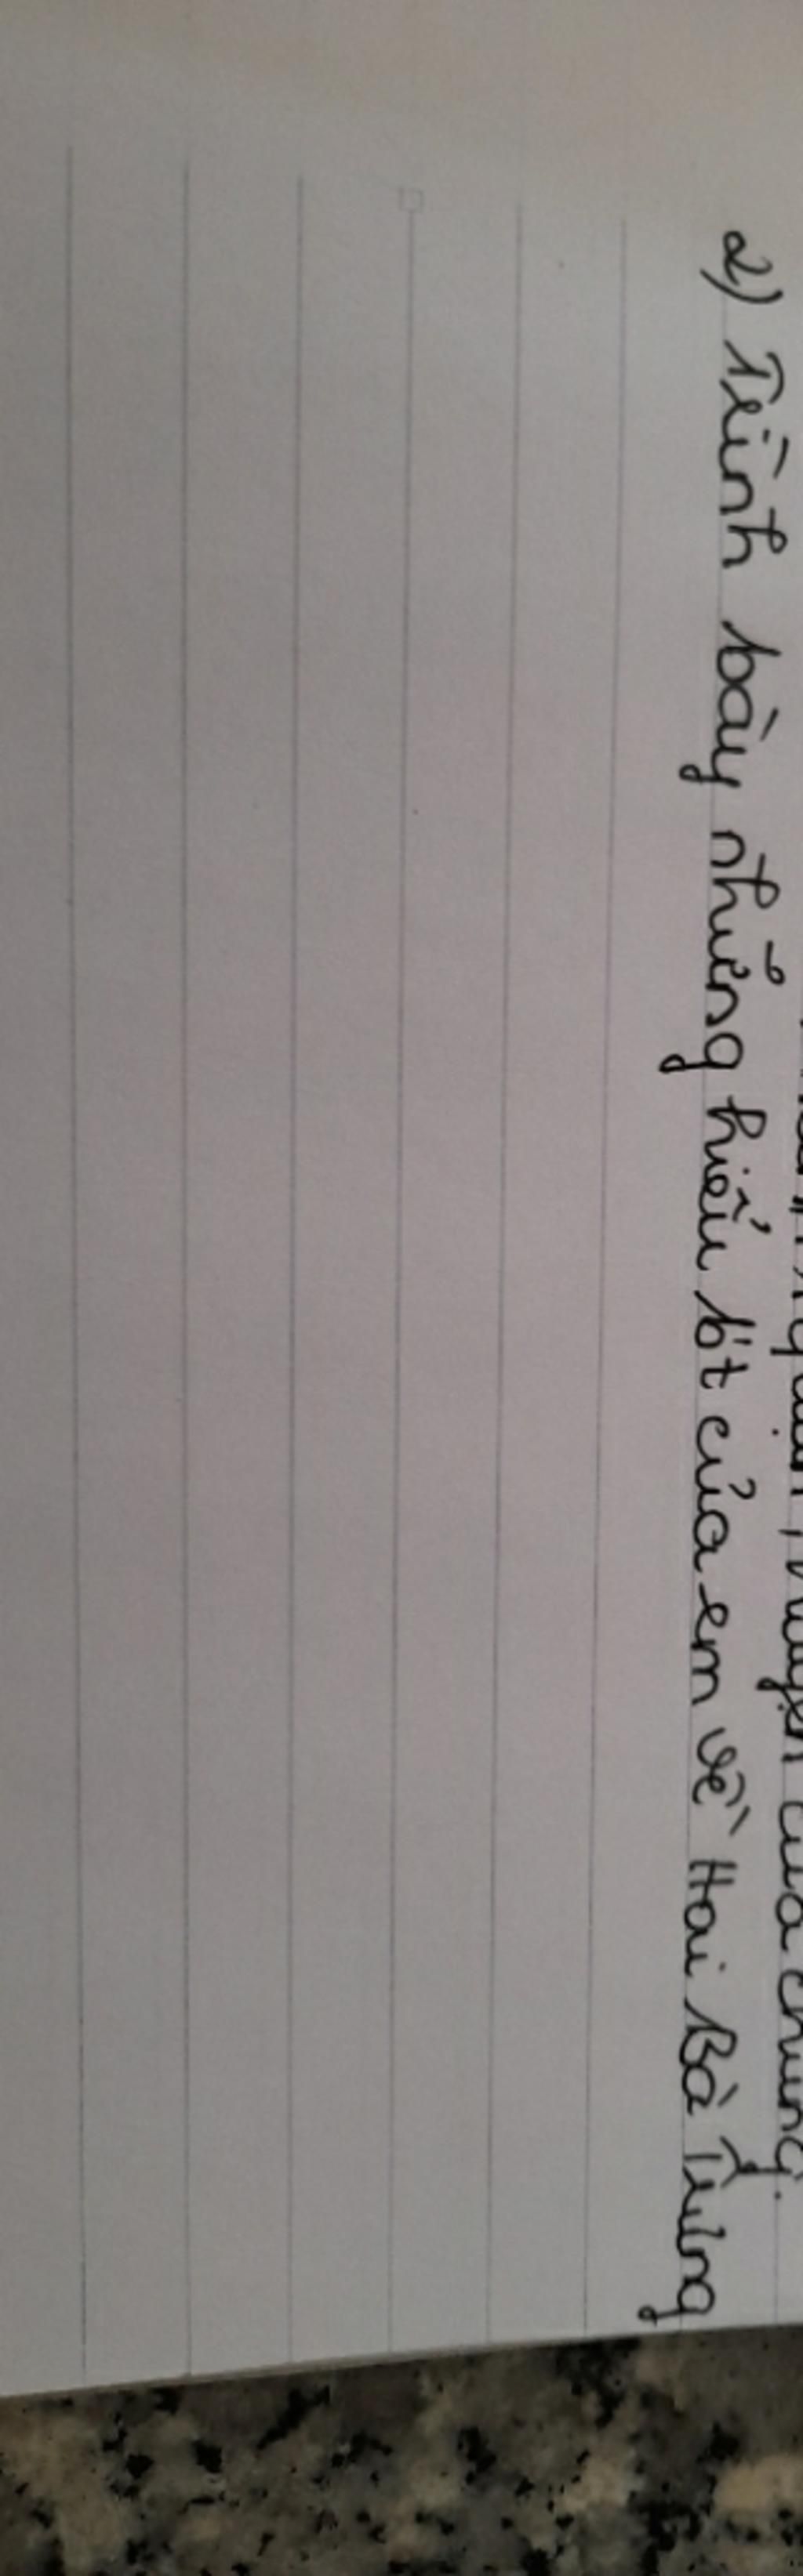 của chúng.
2) Trình bày những hiểu bt của em về Hai Bà Trưng